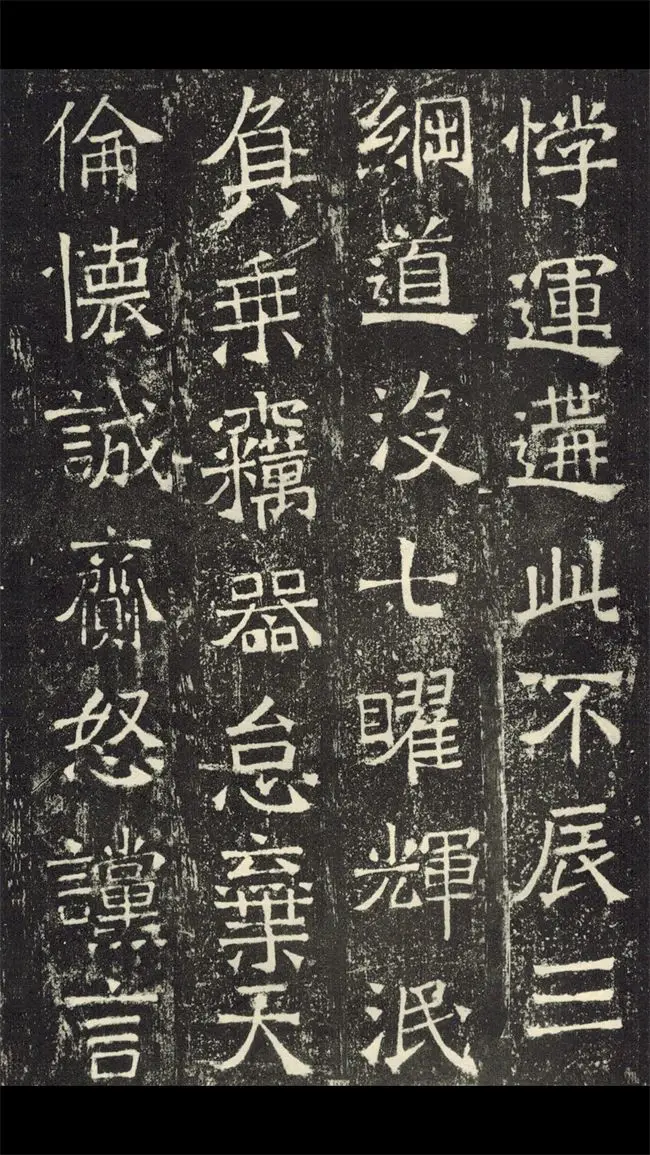 悖運遘此不辰三
綱道沒七曜輝泯
負乗竊器怠棄天
倫懷誠齎怒讜言